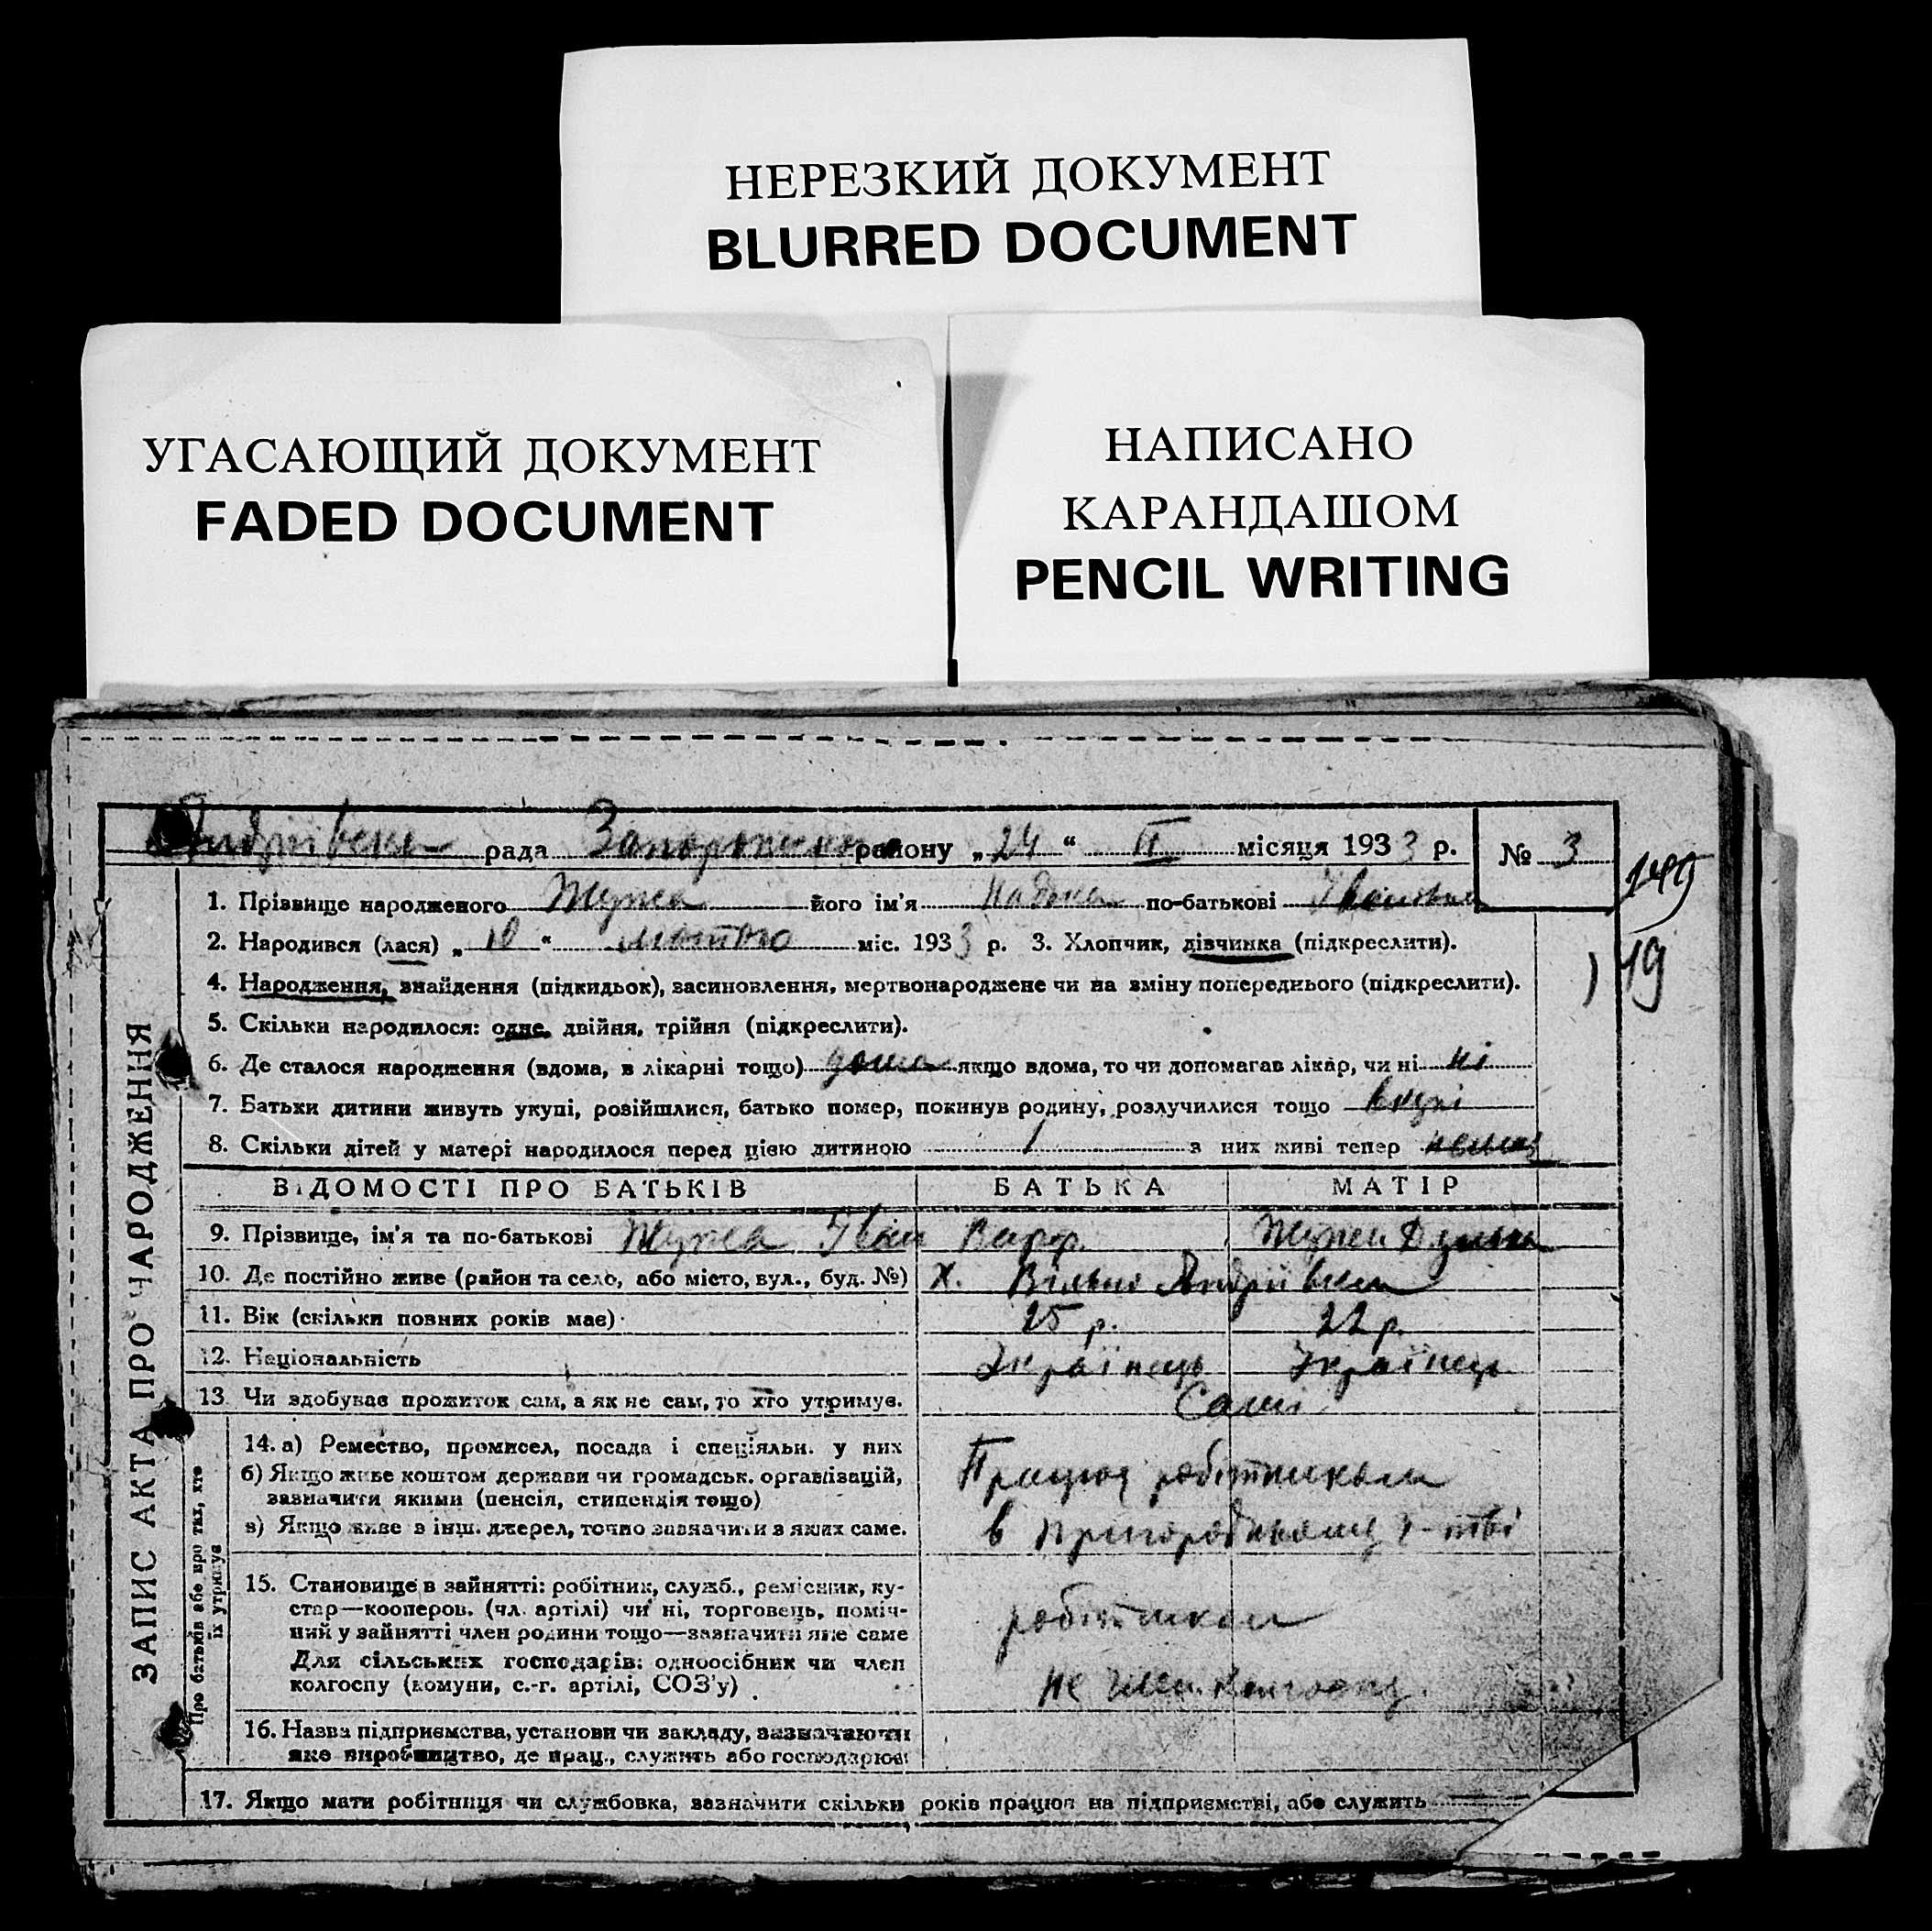 НЕРЕЗКИЙ ДОКУМЕНТ
BLURRED DOCUMENT
УГАСАЮЩИЙ ДОКУМЕНТ
FADED DOCUMENT
НАПИСАНО
КАРАНДАШОМ
PENCIL WRITING
рада району „24“ II місяця 1933 р. № 3
149
19
ЗАПИС АКТА ПРО НАРОДЖЕННЯ
1. Прізвище народженого його ім'я по-батькові Іванівна
2. Народився (лася) „10“ лютого міс. 1933 р. 3. Хлопчик, дівчинка (підкреслити).
4. Народження, знайдення (підкидьок), засиновлення, мертвонароджене чи на зміну попереднього (підкреслити).
5. Скільки народилося: одне, двійня, трійня (підкреслити).
6. Де сталося народження (вдома, в лікарні тощо) дома якщо вдома, то чи допомагав лікар, чи ні ні
7. Батьки дитини живуть укупі, розійшлися, батько помер, покинув родину, розлучилися тощо вкупі
8. Скільки дітей у матері народилося перед цією дитиною 1 з них живі тепер немає
ВІДОМОСТІ ПРО БАТЬКІВ БАТЬКА МАТІР
9. Прізвище, ім'я та по-батькові Іван
10. Де постійно живе (район та село, або місто, вул., буд. №) х. Вільно Андріївка
11. Вік (скільки повних років має) 25 р. 22 р.
12. Національність Українець Українець
13. Чи здобуває прожиток сам, а як не сам, то хто утримує. Самі
Про батьків або про тих, хто
їх утримує
14. а) Ремество, промисел, посада і спеціяльн. у них
б) Якщо живе коштом держави чи громадськ. організацій,
зазначити якими (пенсія, стипендія тощо)
в) Якщо живе з інш. джерел, точно зазначити з яких саме.
Працює робітником
в пригородньому г-тві
15. Становище в зайнятті: робітник, служб., ремісник, ку-
стар—кооперов. (чл. артілі) чи ні, торговець, поміч-
ний у зайнятті член родини тощо—зазначити яке саме
Для сільських господарів: одноосібник чи член
колгоспу (комуни, с.-г. артілі, СОЗ'у)
робітником
не член колгоспу.
16. Назва підприємства, установи чи закладу, зазначаючи
яке виробництво, де прац., служить або господарює
17. Якщо мати робітниця чи службовка, зазначити скільки років працює на підприємстві, або служить